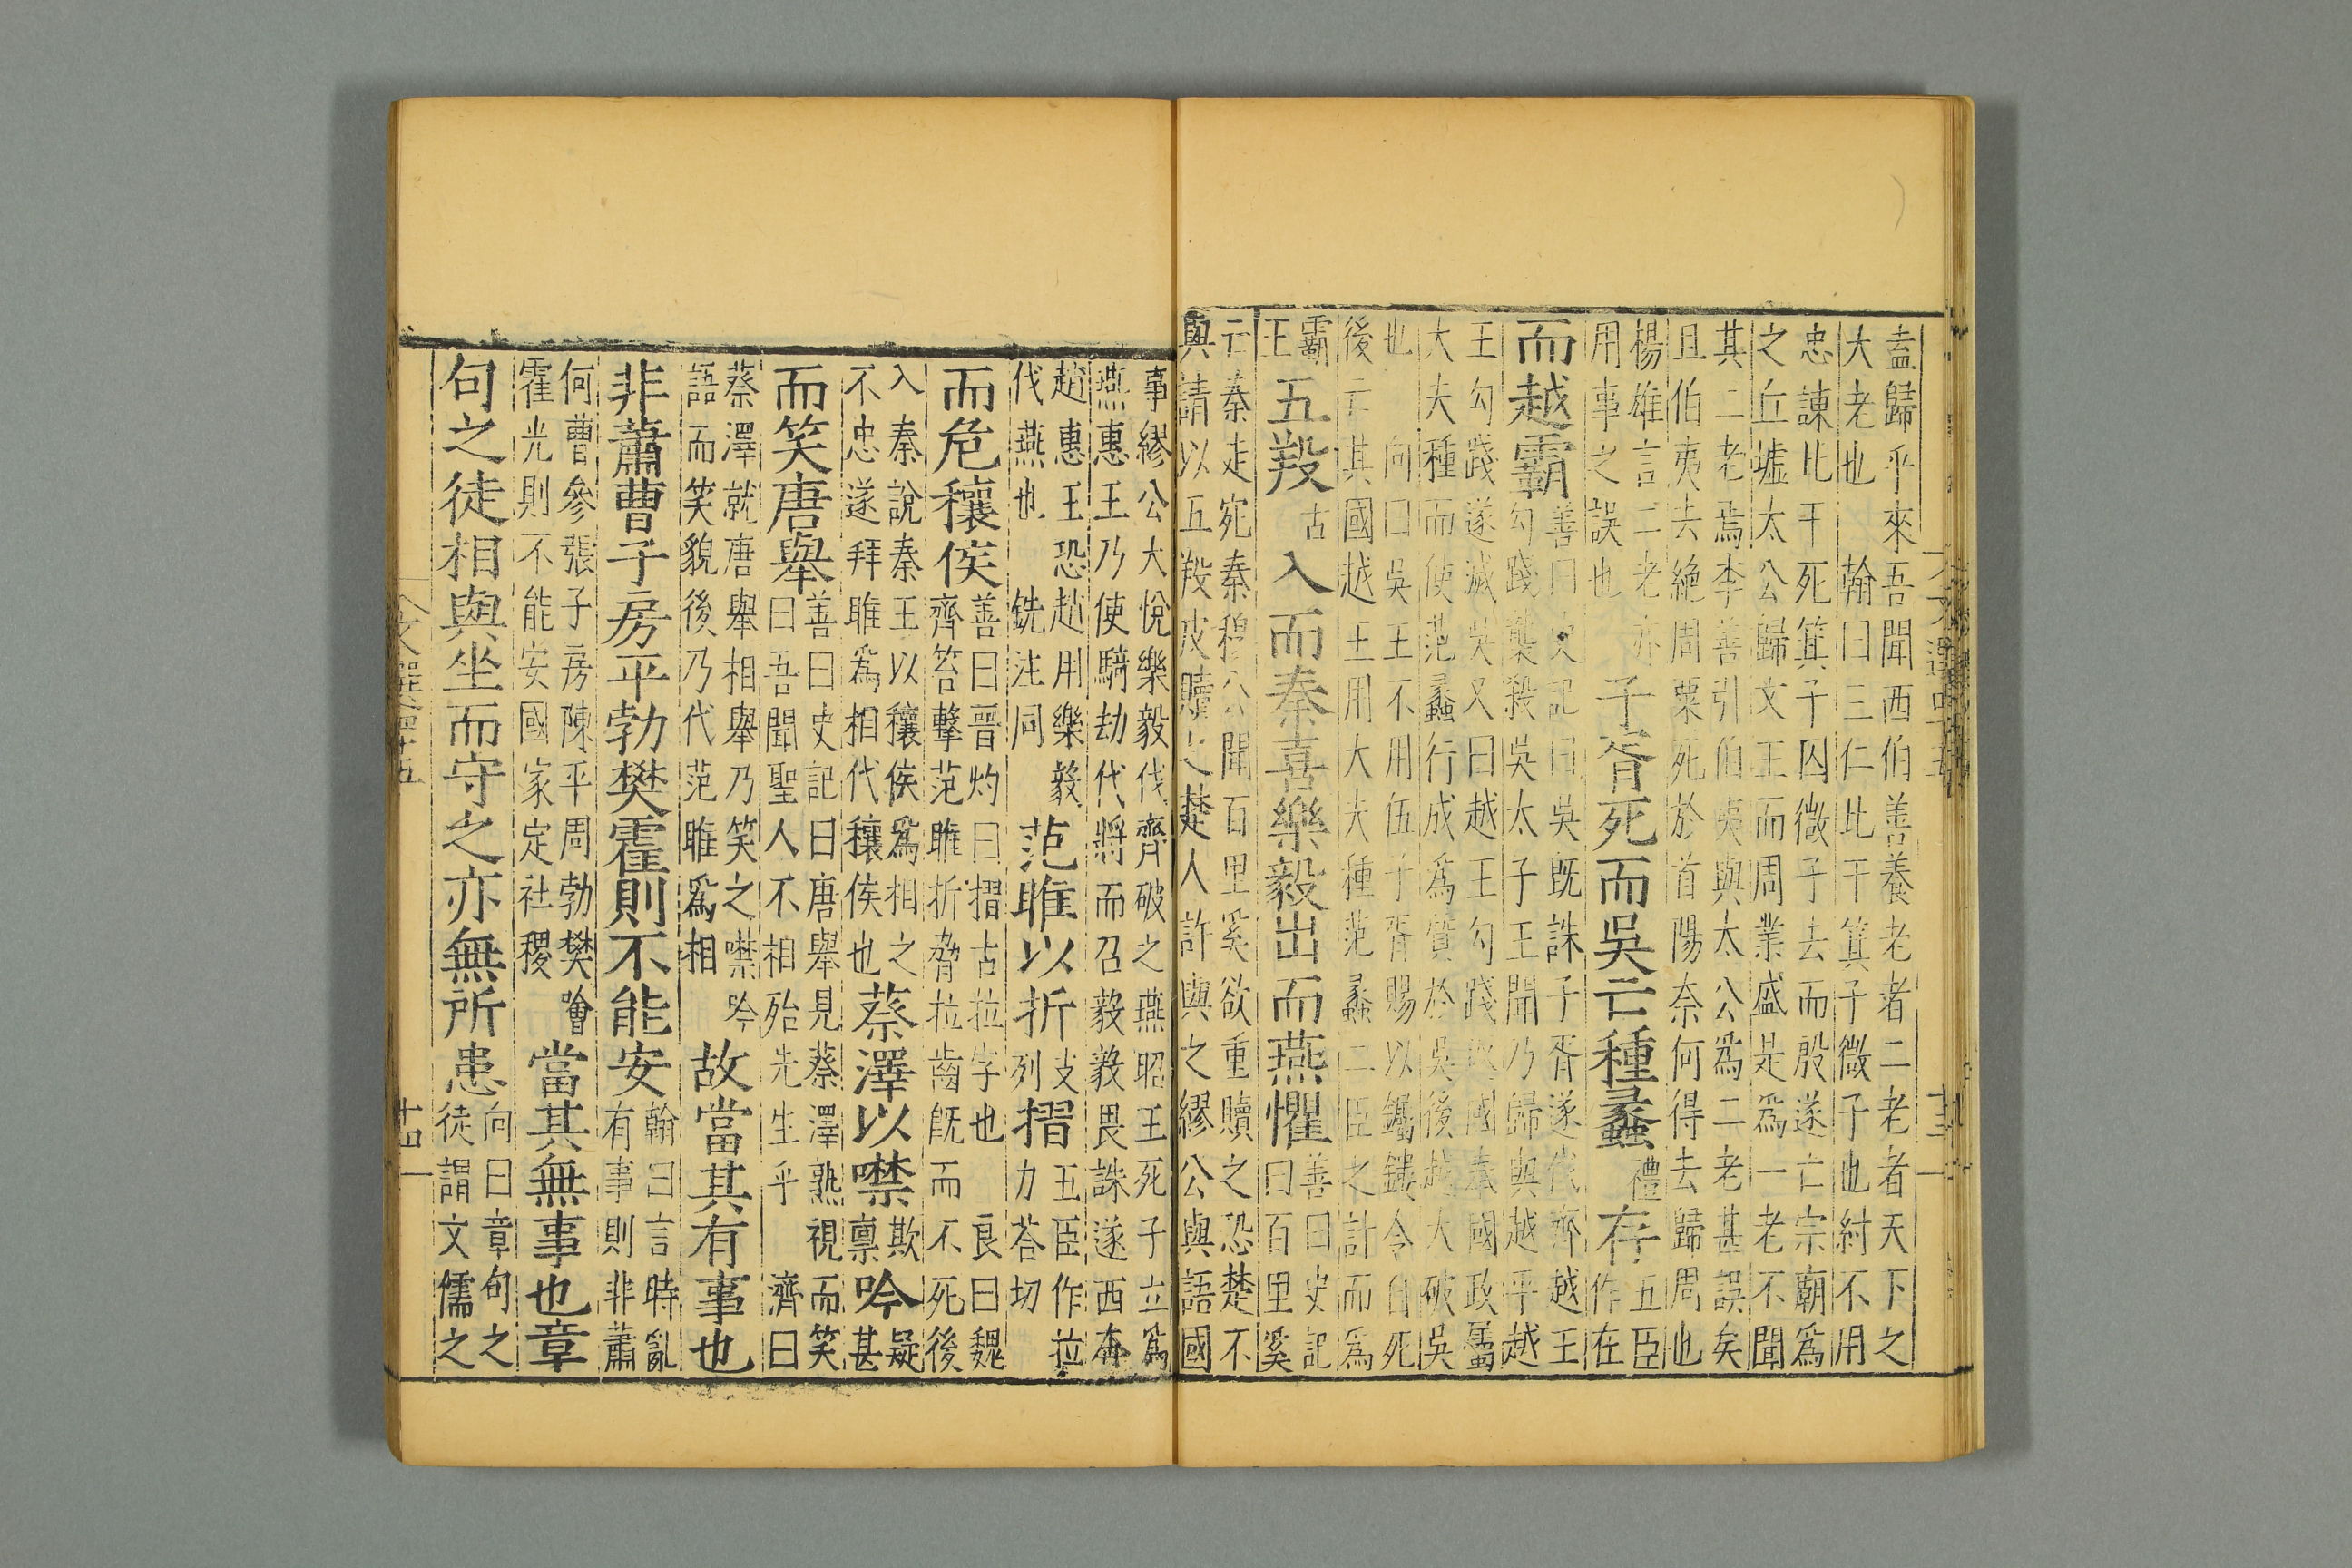 盍歸乎來吾聞西伯善養老者二老者天下之
大老也 翰曰三仁比干箕子微子也紂不用
忠諫比干死箕子囚微子去而殷遂亡宗廟爲
之丘墟太公歸文王而周業盛是爲一老不聞
其二老焉李善引伯夷與太公爲二老甚誤矣
且伯夷去絶周粟死於首陽奈何得去歸周也
楊雄言二老亦
用事之誤也
子胥死而吳亡種蠡
禮
存
五臣
作在
而越霸
善曰史記曰吳旣誅子胥遂伐齊越王
勾踐襲殺吳太子王聞乃歸與越平越
王勾踐遂滅吳又曰越王勾踐返國奉國政屬
大夫種而使范蠡行成爲質於吳後越大破吳
也 向曰吳王不用伍子胥賜以鐲鏤令自死
後亡其國越王用大夫種范蠡二臣之計而爲
霸
王
五羖
古
入而秦喜樂毅出而燕懼
善曰史記
曰百里奚
亡秦走宛秦穆公聞百里奚欲重贖之恐楚不
與請以五羖皮贖之楚人許與之繆公與語國
事繆公大悅樂毅伐齊破之燕昭王死子立爲
燕惠王乃使騎劫代將而召毅毅畏誅遂西奔
趙惠王恐趙用樂毅
代燕也 銑注同
范雎以折
支
列
摺
五臣作拉
力荅切
而危穰侯
善曰晉灼曰摺古拉字也 良曰魏
齊笞擊范雎折脅拉齒旣而不死後
入秦說秦王以穰侯爲相之
不忠遂拜雎爲相代穰侯也
蔡澤以噤
欺
禀
吟
疑
甚
而笑唐舉
善曰史記曰唐舉見蔡澤熟視而笑
曰吾聞聖人不相殆先生乎 濟曰
蔡澤就唐舉相舉乃笑之噤吟
語而笑貌後乃代范雎爲相
故當其有事也
非蕭曹子房平勃樊霍則不能安
翰曰言時亂
有事則非蕭
何曹參張子房陳平周勃樊噲
霍光則不能安國家定社稷
當其無事也章
句之徒相與坐而守之亦無所患
向曰章句之
徒謂文儒之
文選卷四十五
十三
文選卷四十五
十四